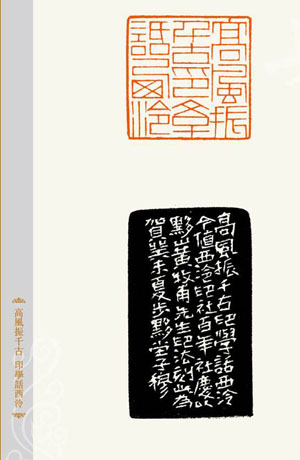 高風振
千古印學
話西泠
高風振千古印學話西泠
今值西泠印社百年社慶以
黟山黃牧甫先生印法刻此為
賀癸未夏步黟堂子穆
高風振千古 印學話西泠